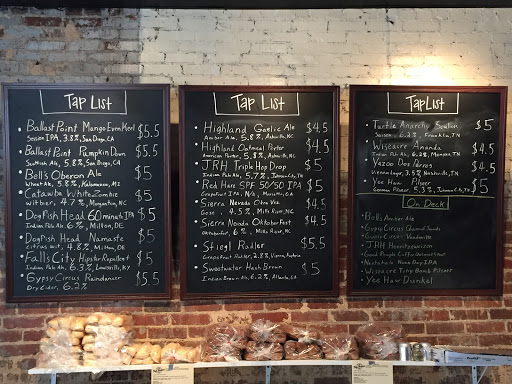 Tap List
Ballast Point Mango Even Keel $5.5
Session IPA, 3.8%, San Diego, CA
Ballast Point Pumpkin Down $5.5
Scottish Ale, 5.8%, San Diego, CA
Bell's Oberon Ale $5
Wheat Ale, 5.8%, Kalamazoo, MI
Catawba White Zombie $5
wit bier, 4.7%, Morganton, NC
Dogfish Head 60 minute IPA $5
Indian Pale Ale, 6%, Milton, DE
Dogfish Head Namaste $5
citrus wit, 4.8%, Milton, DE
Falls City Hipster Repellent $5
Indian Pale Ale, 6.3%, Louisville, KY
Gypsy Circus Raindancer $5
Dry Cider, 6.2%
Tap List
Highland Gaelic Ale $4.5
Amber Ale, 5.8%, Asheville, NC
Highland Oatmeal Porter $4.5
American Porter, 5.8%, Asheville, NC
JRH Triple Hop Drop $5
Indian Pale Ale, 5.7%, Johnson City, TN
Red Hare SPF 50/50 IPA $5
Grapefruit IPA, Marietta, GA
Sierra Nevada Otra Vez $4.5
Gose, 4.5%, Mills River, NC
Sierra Nevada Oktoberfest $4.5
Oktoberfest, 6%, Mills River, NC
Stiegl Radler $5.5
Grapefruit Radler, 2.8%, Vienna, Austria
Sweetwater Hash Brown $5
Indian Brown Ale, 6.2%, Atlanta, GA
Tap List
Turtle Anarchy $5
Saison, 6.2%, Franklin, TN
Wiseacre Ananda $4.5
Indian Pale Ale, 6.2%, Memphis, TN
Yazoo Dos Perros $4.5
Vienna Lager, 3.5%, Nashville, TN
Yee Haw Pilsner $5
German Pilsner, 5.3%, Johnson City, TN
On Deck
Bell's Amber Ale
Gypsy Circus
Gypsy Circus
JRH
Good People Coffee Oatmeal Stout
IPA
Wiseacre Tiny Bomb Pilsner
Yee Haw Dunkel